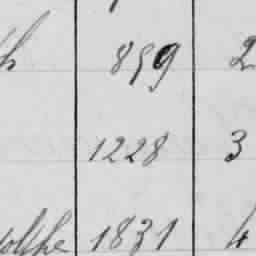 859 2
1228 3
1831 4